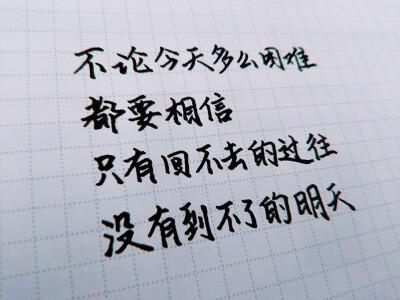 不论今天多么困难
都要相信
只有回不去的过往
没有到不了的明天